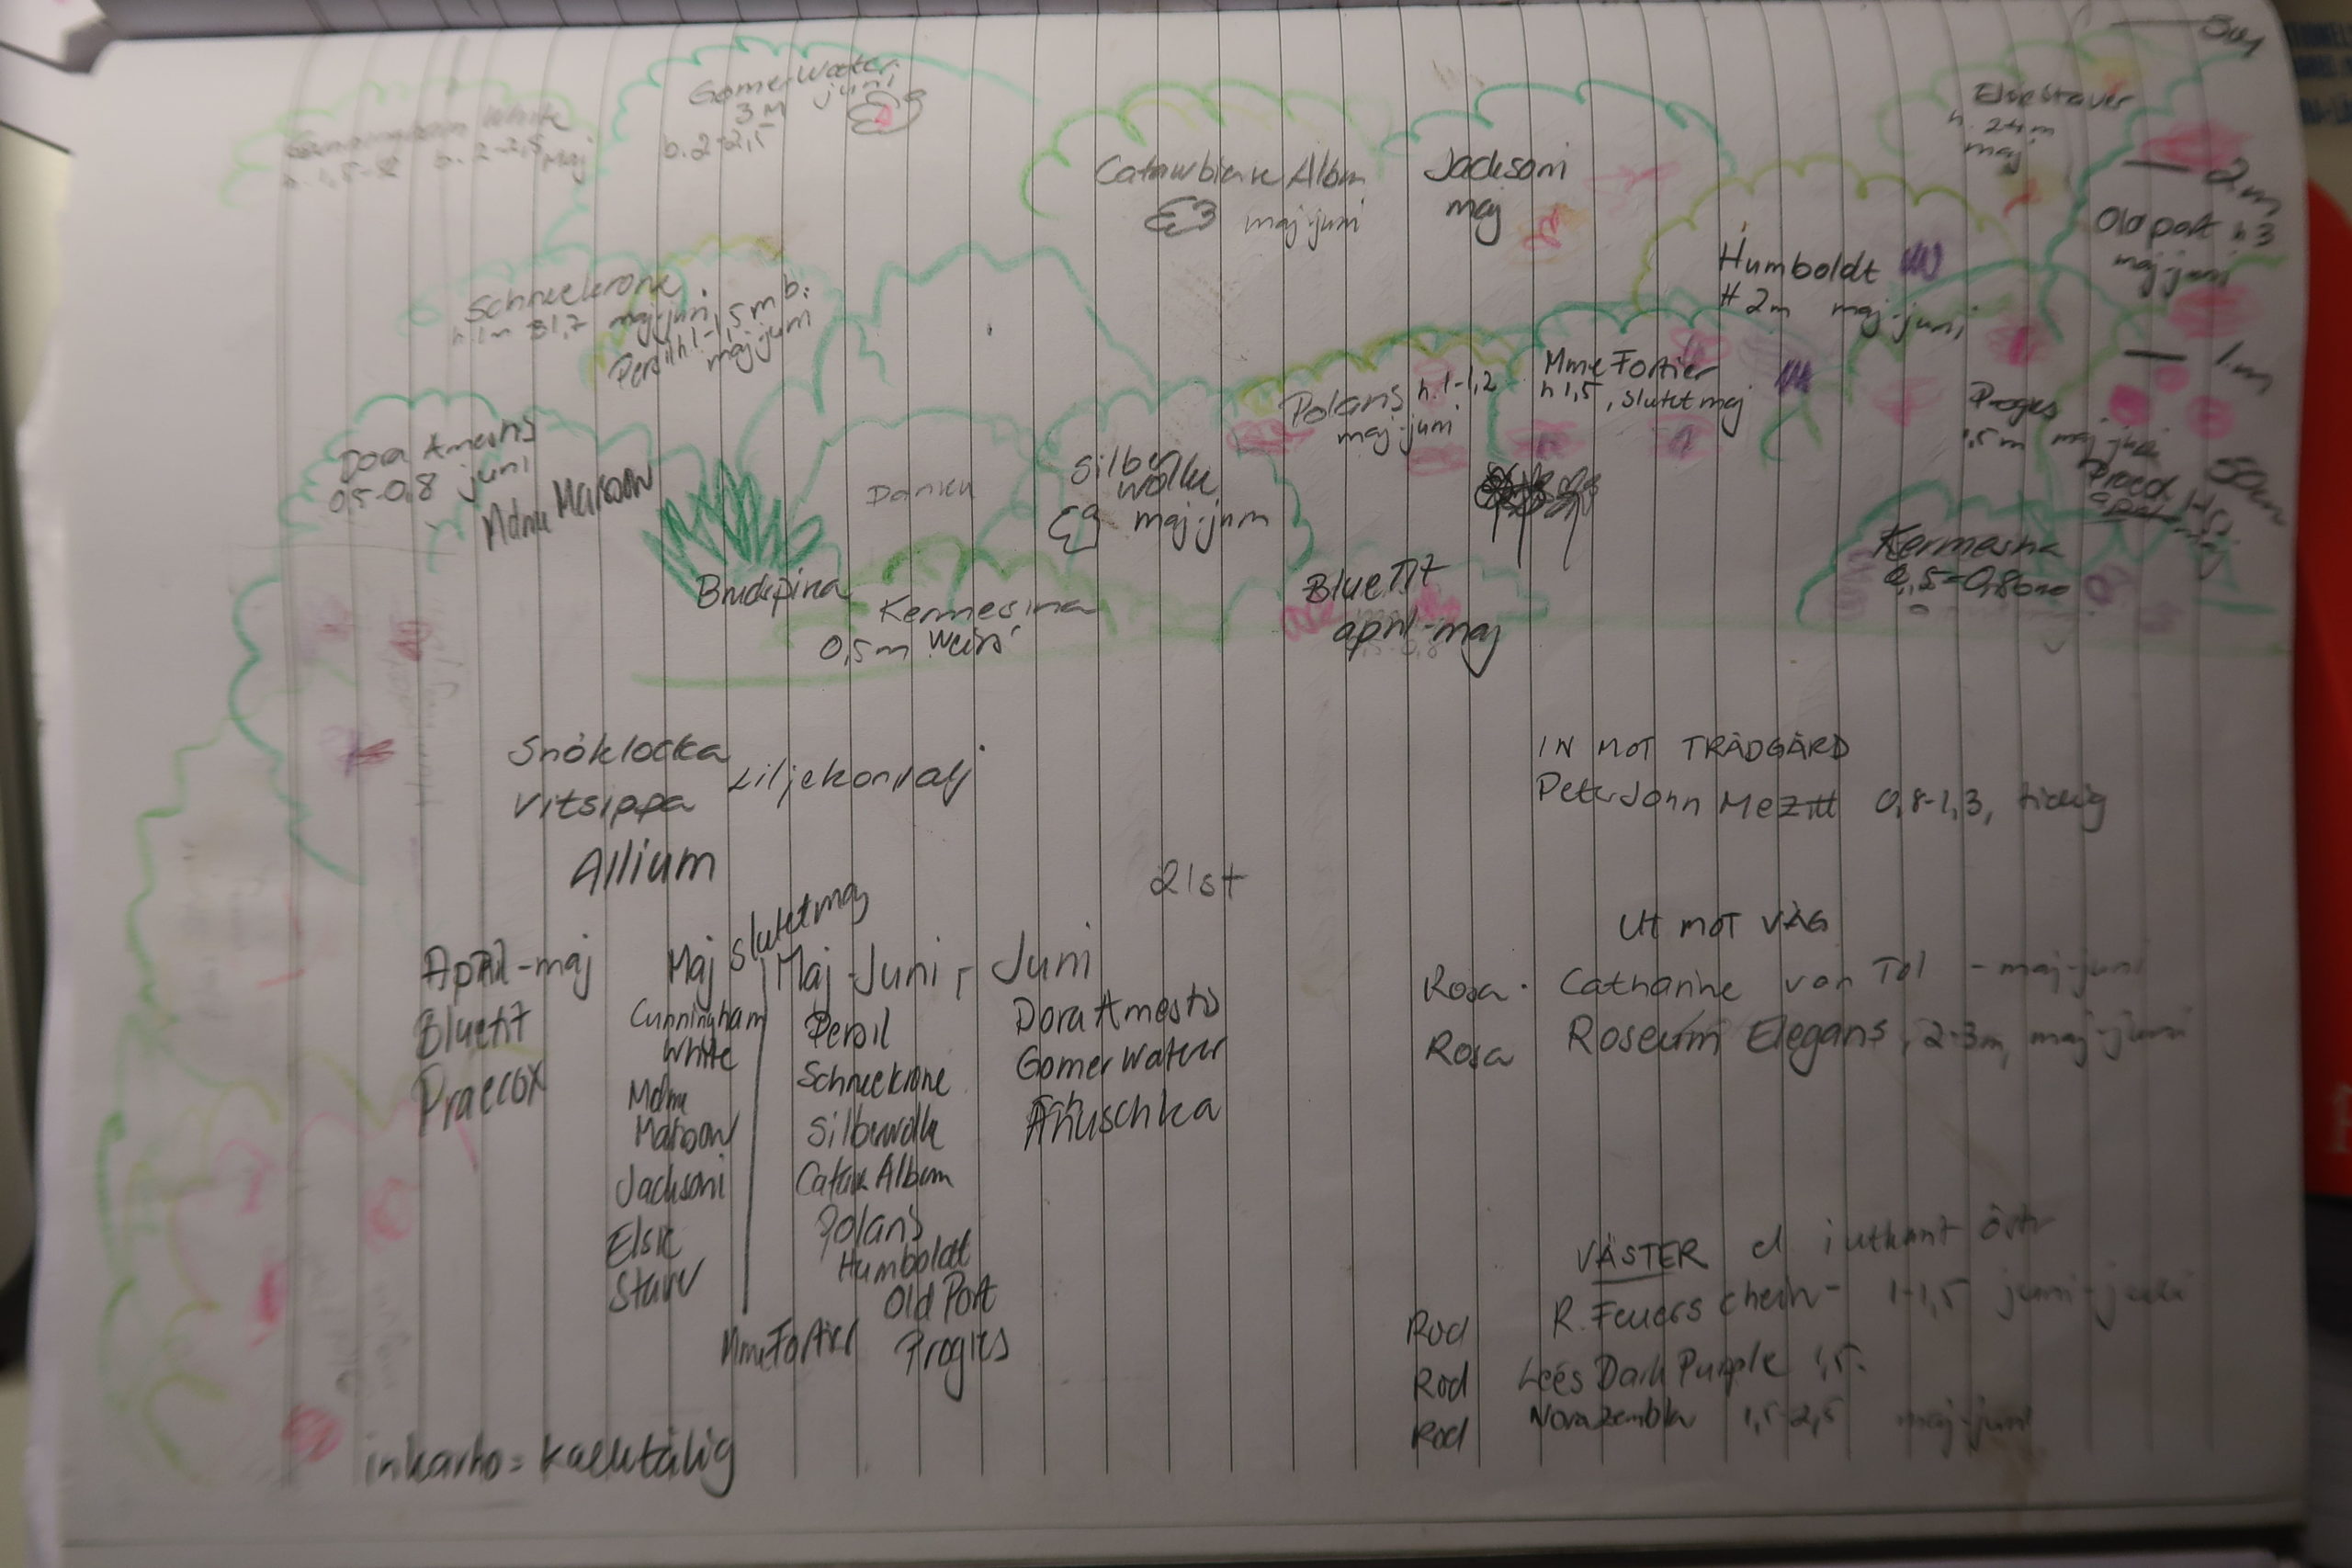 3m
Gomer Water
3 m juni
b. 2-2,5
Cunningham White
h. 1,5-2 b. 2-2,5 maj
Catawbiense Album
maj-juni
Jacksoni
maj
Elsie Staver
h. 2 m
maj
2m
Old port h 3
maj-juni
Humboldt
H 2m maj-juni
Schneekrone
h. 1m B 1,7 maj-juni
Persil h. 1-1,5 m b:
maj juni
Polaris h. 1-1,2
maj-juni
Mme Fortier
h 1,5, slutet maj
1m
Progres
1,5 m maj juni
50cm
april-maj
Dora Amestis
0,5-0,8 juni
Mdme Maroow
Silber
wolke
maj-juni
Brudspira
Kermesina
0,5m Weiss
Blue Tit
april-maj
Kermesina
0,5-0,8
Snöklocka
Vitsippa Liljekonvalj
Allium
21st
IN MOT TRÄDGÅRD
Peter John Mezitt 0,8-1,3, tidig
UT MOT VÄG
Rosa · Catharine van Tol - maj-juni
Rosa Roseum Elegans, 2-3m, maj-juni
VÄSTER el i utkant östr
Röd R. Feuerschein - 1-1,5 juni-juli
Röd Leés Dark Purple 1,5.
Röd Nova Zembla 1,5-2,5 maj-juni
April-maj
Bluetit
Praecox
Maj
Cunningham
White
Mdme
Maroow
Jacksoni
Elsie
Staver
slutet maj
Mme Fortier
Maj-Juni
Persil
Schneekrone
Silberwolke
Cataw Album
Polaris
Humboldt
Old Port
Progres
Juni
Dora Amestis
Gomer Waterer
Anuschka
inkarho = kalktålig